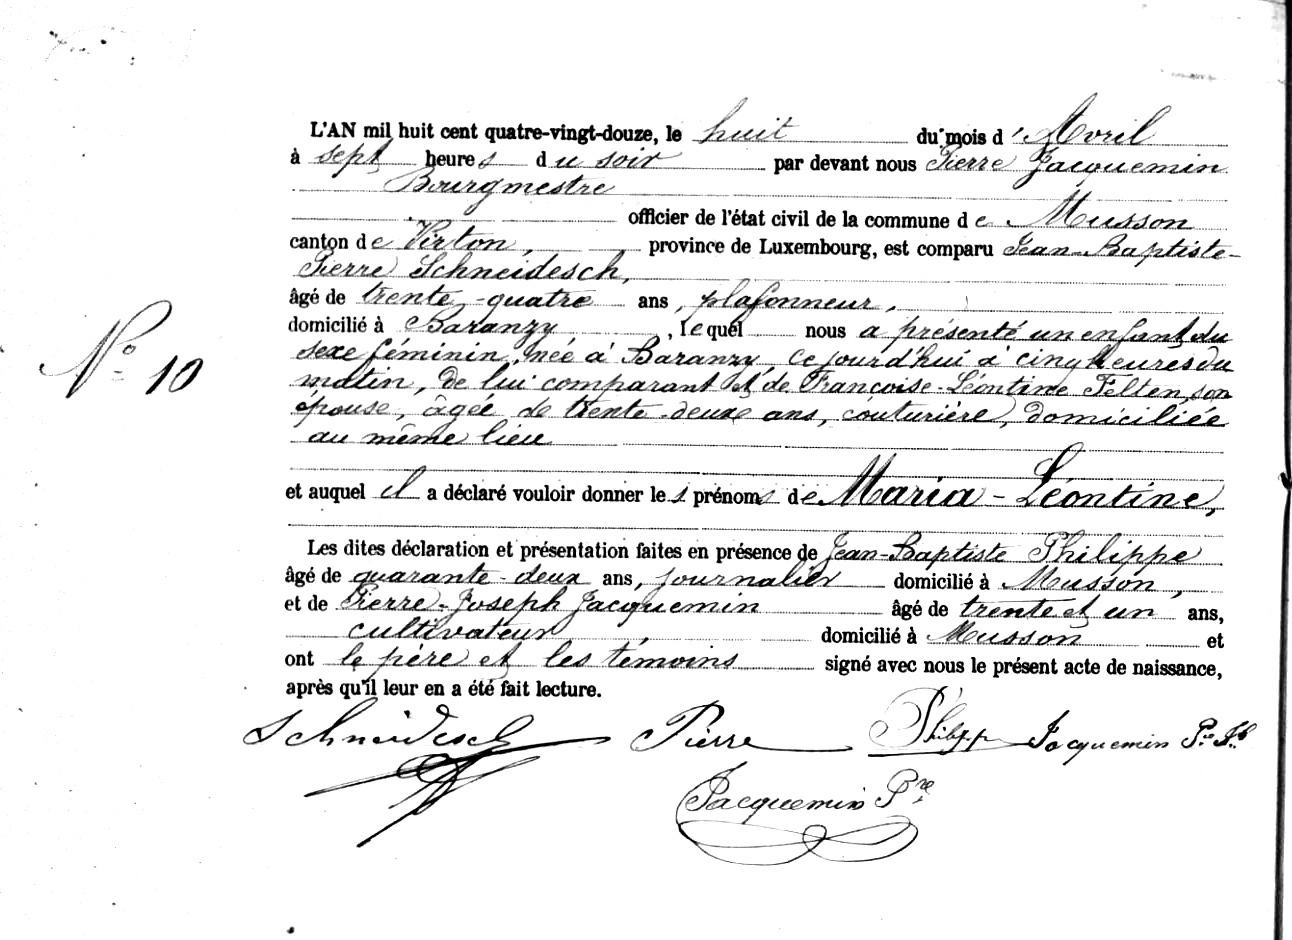 L'AN mil huit cent quatre-vingt-douze, le huit du mois d'Avril
à sept heures du soir par devant nous Pierre Jacquemin
Bourgmestre
officier de l'état civil de la commune de Musson
canton de Virton, province de Luxembourg, est comparu Jean-Baptiste-
Pierre Schneidesch,
âgé de trente-quatre ans, plafonneur,
domicilié à Baranzy, lequel nous a présenté un enfant du
sexe féminin, née à Baranzy, ce jourd'hui à cinq heures du
matin, de lui comparant et de Françoise-Léontine Felten, son
épouse, âgée de trente-deux ans, couturière, domiciliée
au même lieu
N° 10
et auquel il a déclaré vouloir donner les prénoms de Maria-Léontine,
Les dites déclaration et présentation faites en présence de Jean-Baptiste Philippe
âgé de quarante-deux ans, journalier domicilié à Musson,
et de Pierre-Joseph Jacquemin âgé de trente et un ans,
cultivateur, domicilié à Musson et
ont le père et les témoins signé avec nous le présent acte de naissance,
après qu'il leur en a été fait lecture.
Schneidesch Pierre Philipp Jacquemin Pre Jh
Jacquemin Pre